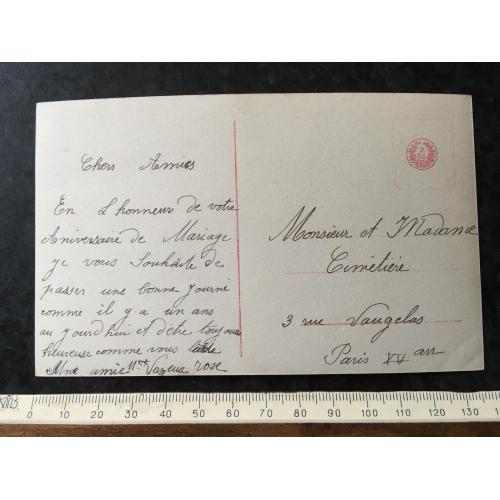 Chers Amies
En L honneur de votre
Aniversaire de Mariage
je vous Souhaite de
passer une bonne journé
comme il y a un ans
au jourd hui et d'etre toujours
heureuse comme vous
Une amie Vazeux rose
Monsieur et Madame
Cimétière
3 rue Vaugelas
Paris XV arr
10 20 30 40 50 60 70 80 90 100 110 120 130